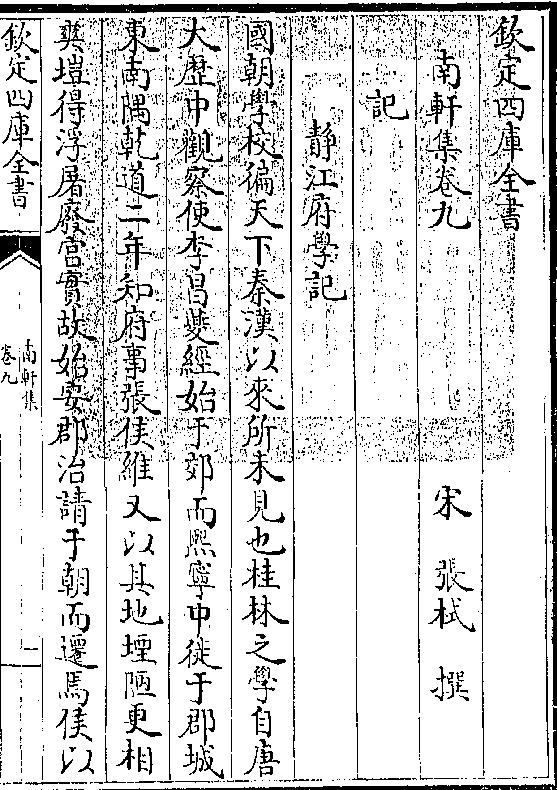 欽定四庫全書
南軒集卷九
宋 張栻 撰
記
静江府學記
國朝學校徧天下秦漢以來所未見也桂林之學自唐
大歴中觀察使李昌夔經始于郊而熙寧中徙于郡城
東南隅乾道二年知府事張侯維又以其地堙陋更相
爽塏得浮屠廢宫實故始安郡治請于朝而遷焉侯以
欽定四庫全書
南軒集
卷九
一